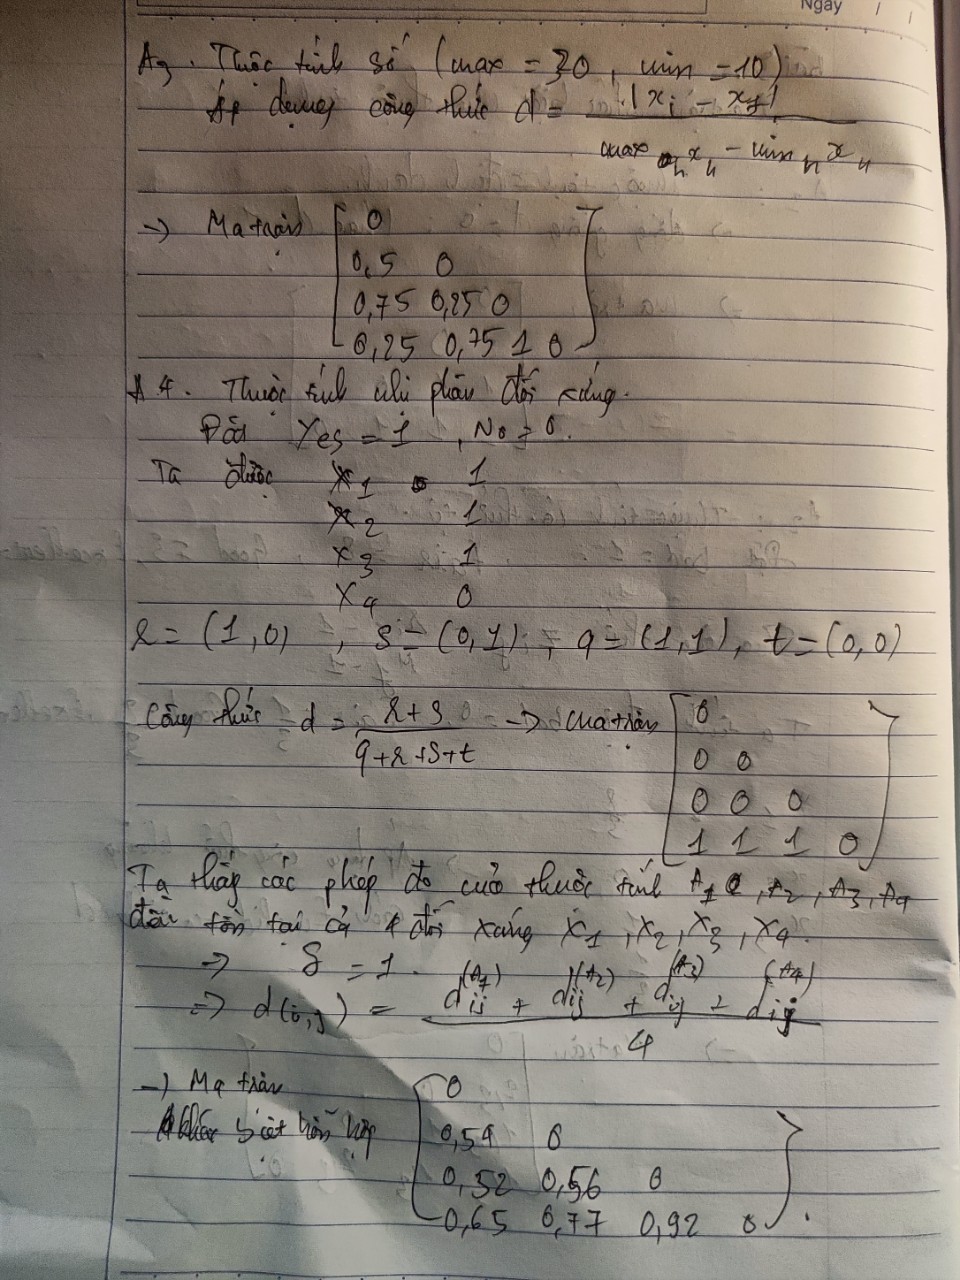 Ngày / /
A3. Thuộc tính số (max = 30, min = 10)
Áp dụng công thức d = |xi - xj| / max h xh - min h xh
→ Ma trận
0
0,5 0
0,75 0,25 0
0,25 0,75 1 0
A4. Thuộc tính nhị phân đối xứng.
Đặt Yes = 1, No = 0.
Ta được x1 1
x2 1
x3 1
x4 0
r = (1,0), s = (0,1), q = (1,1), t = (0,0)
Công thức d = r+s / q+r+s+t → ma trận
0
0 0
0 0 0
1 1 1 0
Ta thấy các phép đo của thuộc tính A1, A2, A3, A4
đều tồn tại cả 4 đối xứng x1, x2, x3, x4.
→ δ = 1.
→ d(i,j) = dij(A1) + dij(A2) + dij(A3) + dij(A4) / 4
→ Ma trận
khác biệt hỗn hợp
0
0,54 0
0,52 0,56 0
0,65 0,77 0,92 0.